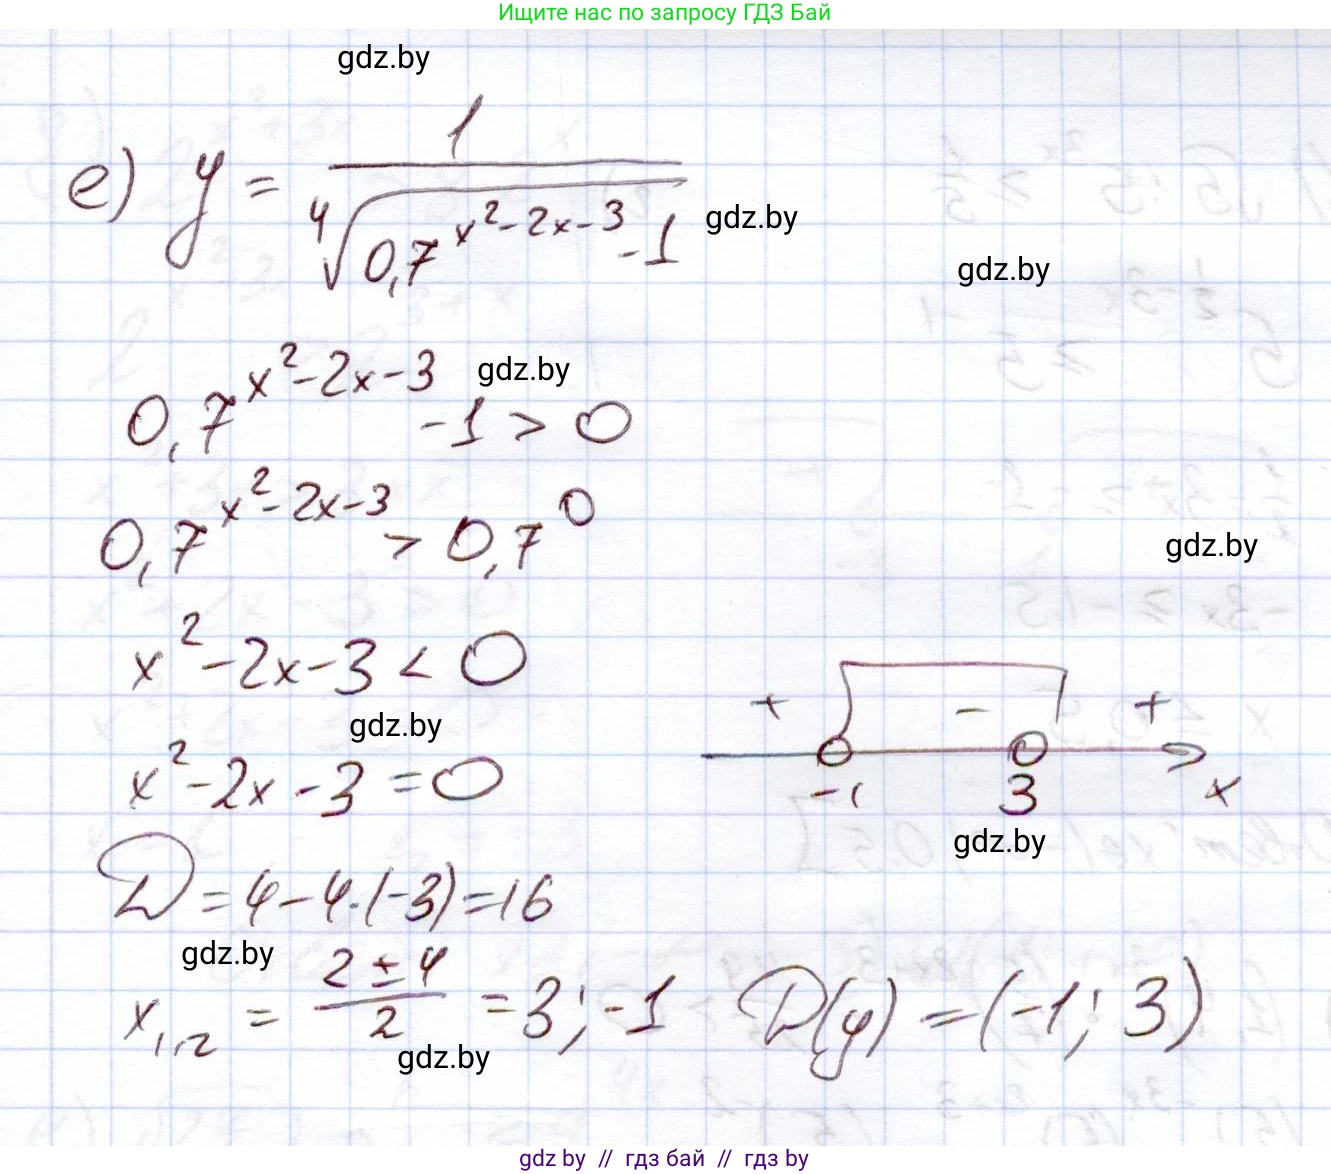 Ищите нас по запросу ГДЗ Бай
gdz.by
е) y = 1 / ⁴√(0,7^(x²-2x-3) -1)
gdz.by
gdz.by
0,7^(x²-2x-3) -1 > 0
gdz.by
0,7^(x²-2x-3) > 0,7^0
gdz.by
x²-2x-3 < 0
+ - +
-1 3 x
gdz.by
x²-2x-3 = 0
gdz.by
D = 4-4·(-3) = 16
gdz.by
x1,2 = (2±4)/2 = 3; -1 D(y) = (-1; 3)
gdz.by
gdz by // гдз бай // гдз by